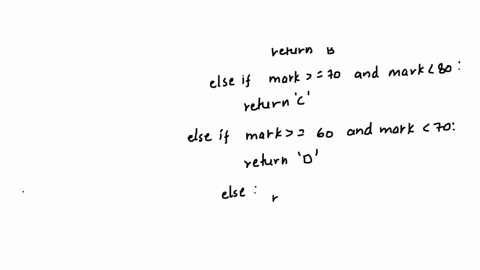 return B
else if mark >= 70 and mark < 80 :
return 'C'
else if mark >= 60 and mark < 70:
return 'D'
else : r